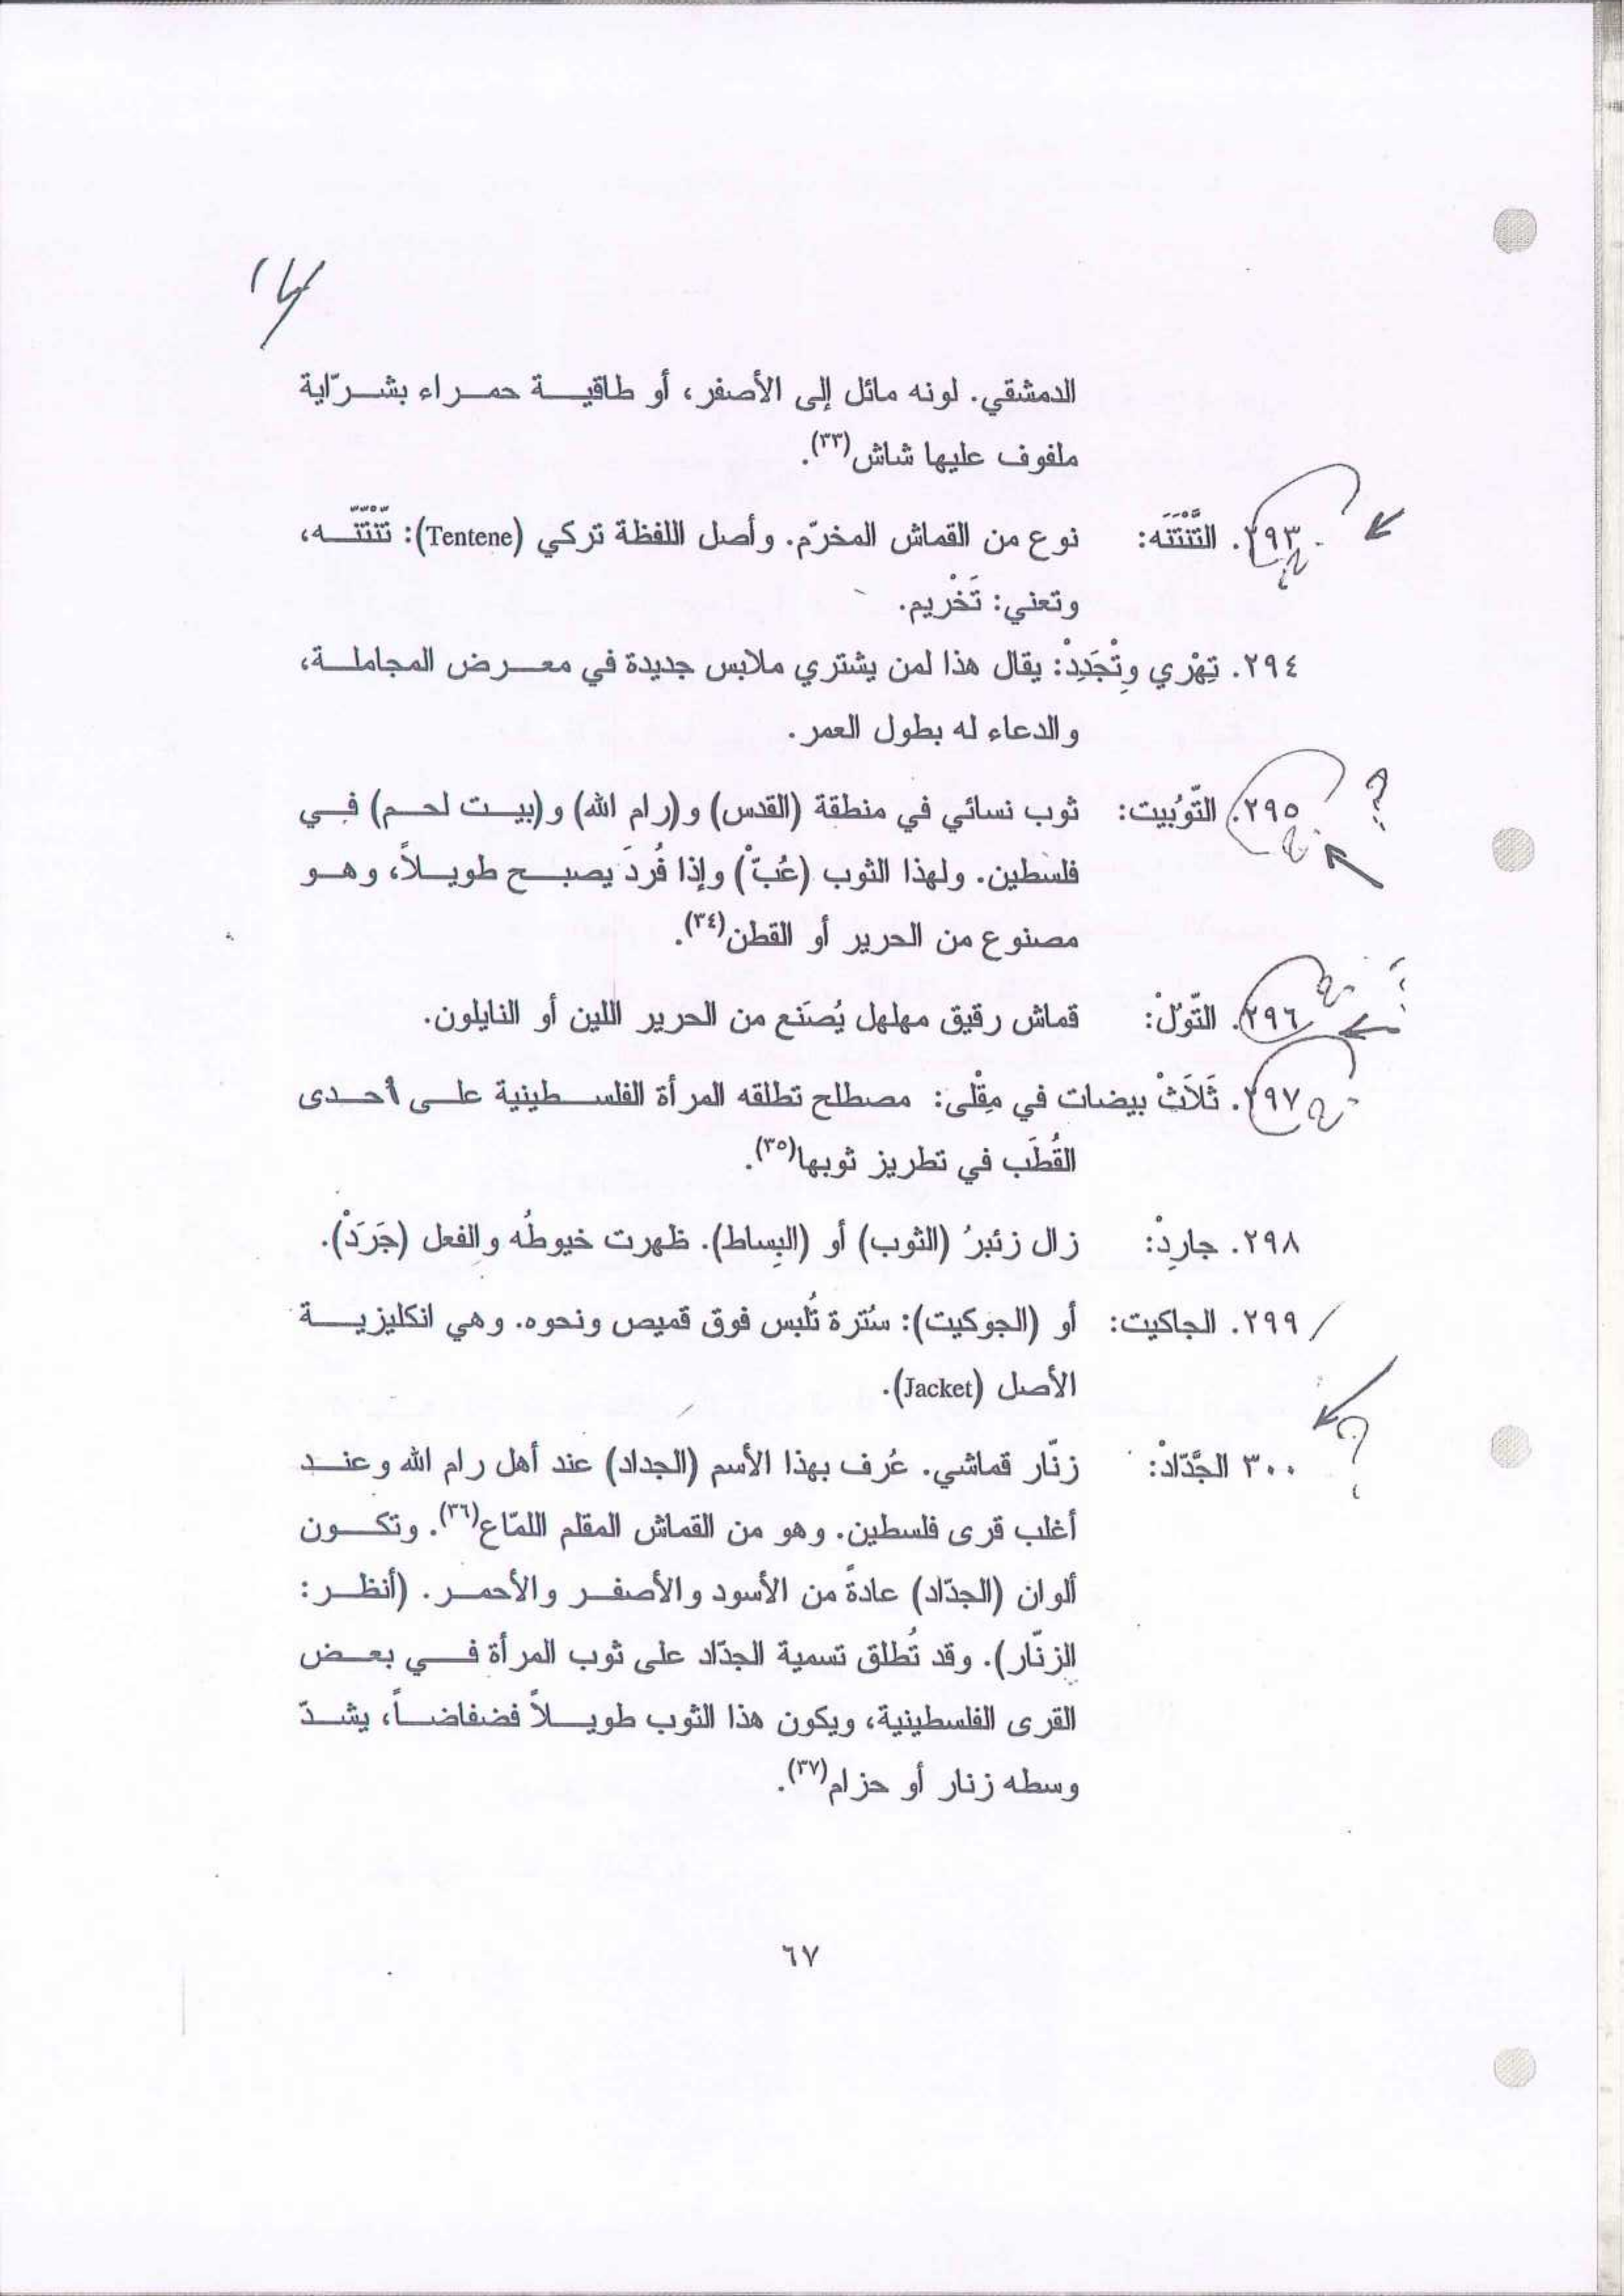 الدمشقي. لونه مائل إلى الأصفر، أو طاقية حمراء بشرّاية
ملفوف عليها شاش(٣٣).
٢٩٣. التَّنْتَنَه: نوع من القماش المخرّم. وأصل اللفظة تركي (Tentene): تَنْتَنَه،
وتعني: تَخْريم.
٢٩٤. تِهْري وِتْجَدِدْ: يقال هذا لمن يشتري ملابس جديدة في معرض المجاملة،
والدعاء له بطول العمر.
٢٩٥. التّوُبيت: ثوب نسائي في منطقة (القدس) و(رام الله) و(بيت لحم) في
فلسطين. ولهذا الثوب (عُبّْ) وإذا فُردَ يصبح طويلاً، وهو
مصنوع من الحرير أو القطن(٣٤).
٢٩٦. التّوُلْ: قماش رقيق مهلهل يُصنَع من الحرير اللين أو النايلون.
٢٩٧. ثَلاَثْ بيضات في مِقْلى: مصطلح تطلقه المرأة الفلسطينية على أحدى
القُطَب في تطريز ثوبها(٣٥).
٢٩٨. جارِدْ: زال زئبرُ (الثوب) أو (البِساط). ظهرت خيوطُه والفعل (جَرَدْ).
٢٩٩. الجاكيت: أو (الجوكيت): سُترة تُلبس فوق قميص ونحوه. وهي انكليزية
الأصل (Jacket).
٣٠٠ الجَّدّادْ: زنّار قماشي. عُرف بهذا الأسم (الجداد) عند أهل رام الله وعند
أغلب قرى فلسطين. وهو من القماش المقلم اللمّاع(٣٦). وتكون
ألوان (الجدّاد) عادةً من الأسود والأصفر والأحمر. (أنظر:
الزنّار). وقد تُطلق تسمية الجدّاد على ثوب المرأة في بعض
القرى الفلسطينية، ويكون هذا الثوب طويلاً فضفاضاً، يشدّ
وسطه زنار أو حزام(٣٧).
٦٧